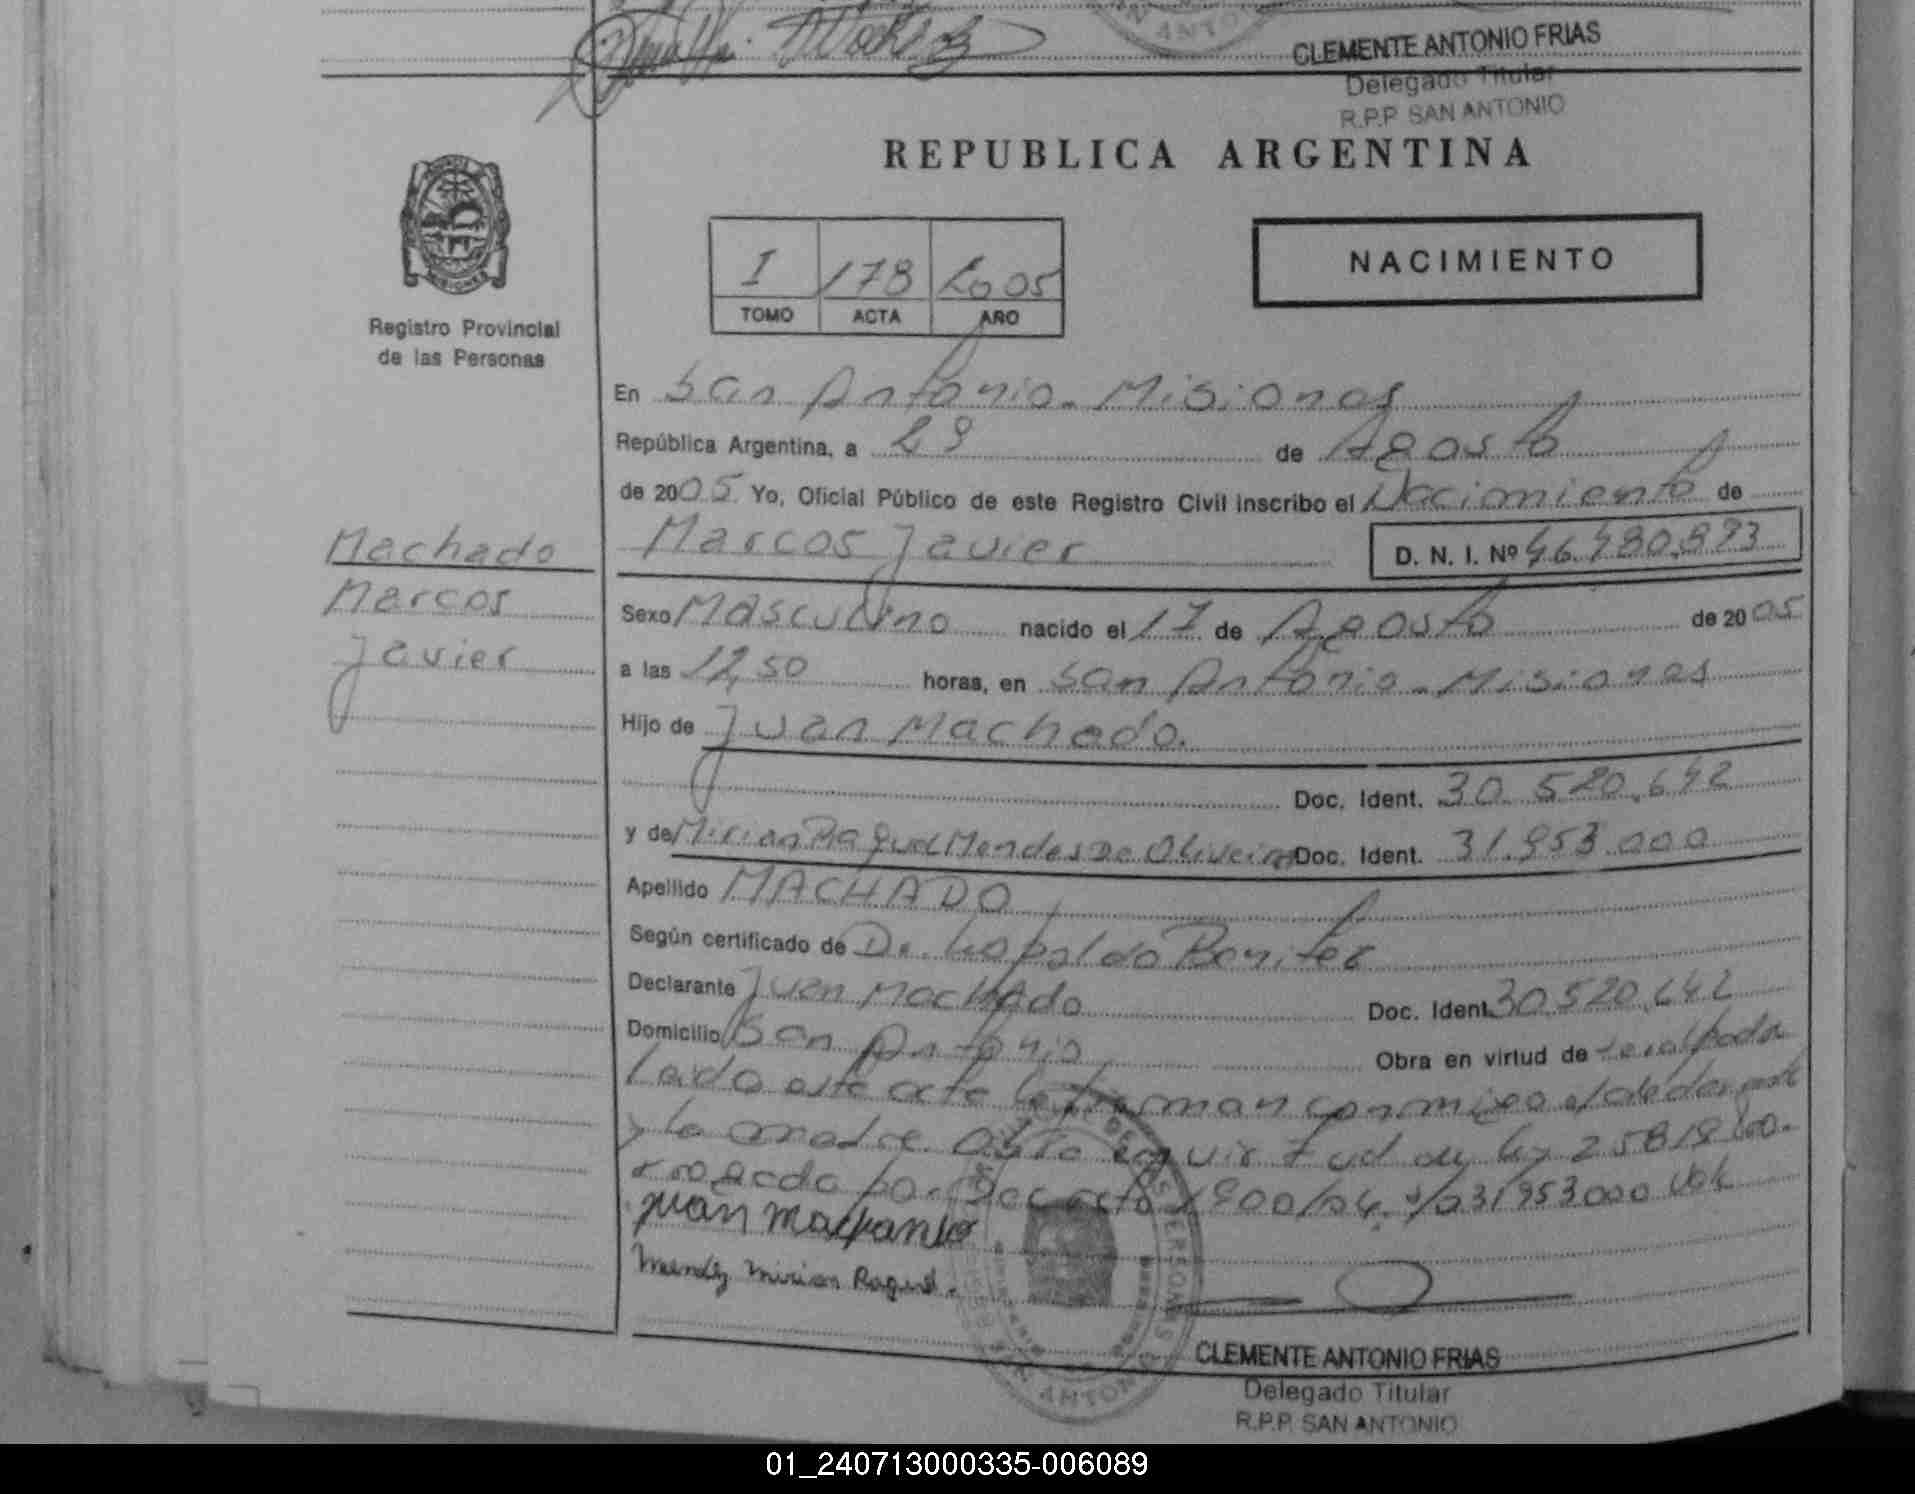 CLEMENTE ANTONIO FRIAS
Delegado Titular
R.P.P. SAN ANTONIO
REPUBLICA ARGENTINA
I 178 2005
TOMO ACTA AÑO
NACIMIENTO
Registro Provincial
de las Personas
En San Antonio - Misiones
República Argentina, a 29 de Agosto
de 2005 Yo, Oficial Público de este Registro Civil inscribo el Nacimiento de
Machado
Marcos
Javier
Marcos Javier D. N. I. Nº 46.480.893
Sexo Masculino nacido el 17 de Agosto de 2005
a las 12,50 horas, en San Antonio - Misiones
Hijo de Juan Machado.
Doc. Ident. 30.520.642
y de Mirian Raquel Mendes De Oliveira Doc. Ident. 31.953.000
Apellido MACHADO
Según certificado de Dr. Leopoldo Benitez
Declarante Juan Machado Doc. Ident. 30520642
Domicilio San Antonio Obra en virtud de
Leido este acta la firman conmigo el
y la madre en virtud de ley 25819
por Decreto 1900/04. 31953.000 Vale
juan machado
Mendez Mirian Raquel.
CLEMENTE ANTONIO FRIAS
Delegado Titular
R.P.P. SAN ANTONIO
01_240713000335-006089